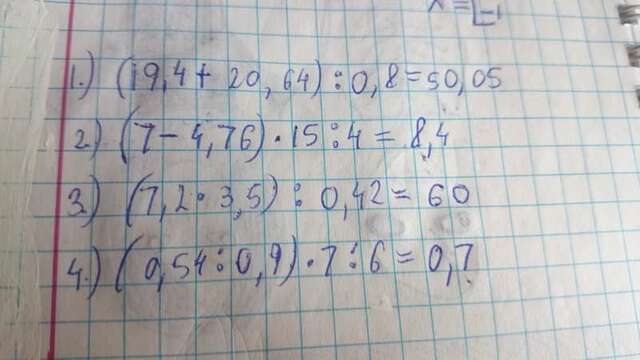 1.) (19,4+ 20,64):0,8=50,05
2.) (7-4,76)·15:4=8,4
3) (7,2·3,5):0,42=60
4.) (0,54:0,9)·7:6=0,7